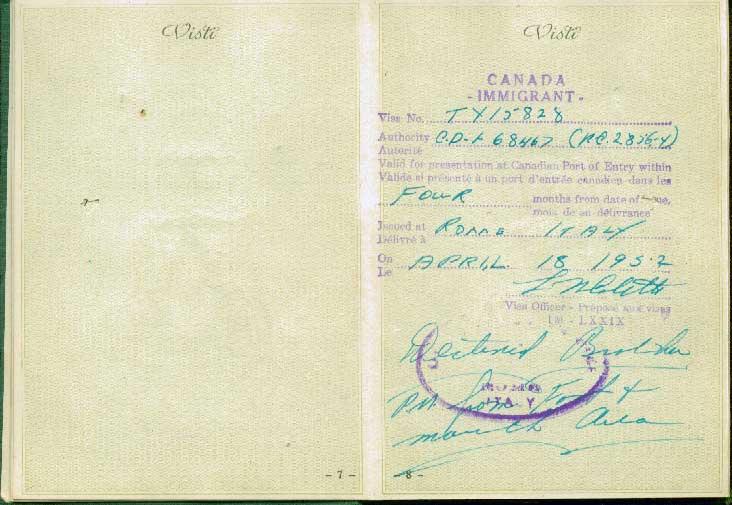 Visti
Visti
CANADA
- IMMIGRANT -
Visa No. TX15828
Authority C.D-1 68467 (P.C. 2856-Y)
Autorité
Valid for presentation at Canadian Port of Entry within
Valide si présenté à un port d'entrée canadien dans les
FOUR months from date of issue,
mois de sa délivrance
Issued at ROME ITALY
Délivré à
On APRIL 18 1952
Le
Visa Officer - Préposé aux visas
LXXIX
from
ITALY
Area
- 7 -
- 8 -